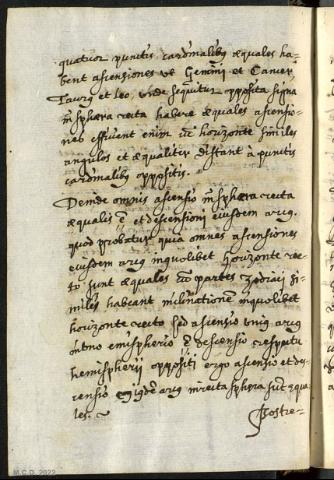 quatuor punctis cardinalibus æquales ha-
bent ascensiones ut Gemini et Cancer,
Taurus et leo, unde sequitur opposita signa
in sphæra recta habere æquales ascensio-
nes efficient enim cum horizonte similes
angulos et æqualiter distant a punctis
cardinalibus oppositis.
Deinde omnis ascensio in sphæra recta
æqualis est et descensioni eiusdem arcus.
quod probatur quia omnes ascensiones
eiusdem arcus in quolibet horizonte rec-
to sunt æquales cum partes zodiaci si-
miles habeant inclinationem in quolibet
horizonte recto sed ascensio unius arcus
in uno emispherio est descensio respectu
hemispherii oppositi ergo ascensio et des-
censio eiusdem arcus in recta sphæra sunt æqua-
les.
Postre-
M.C.D. 2022